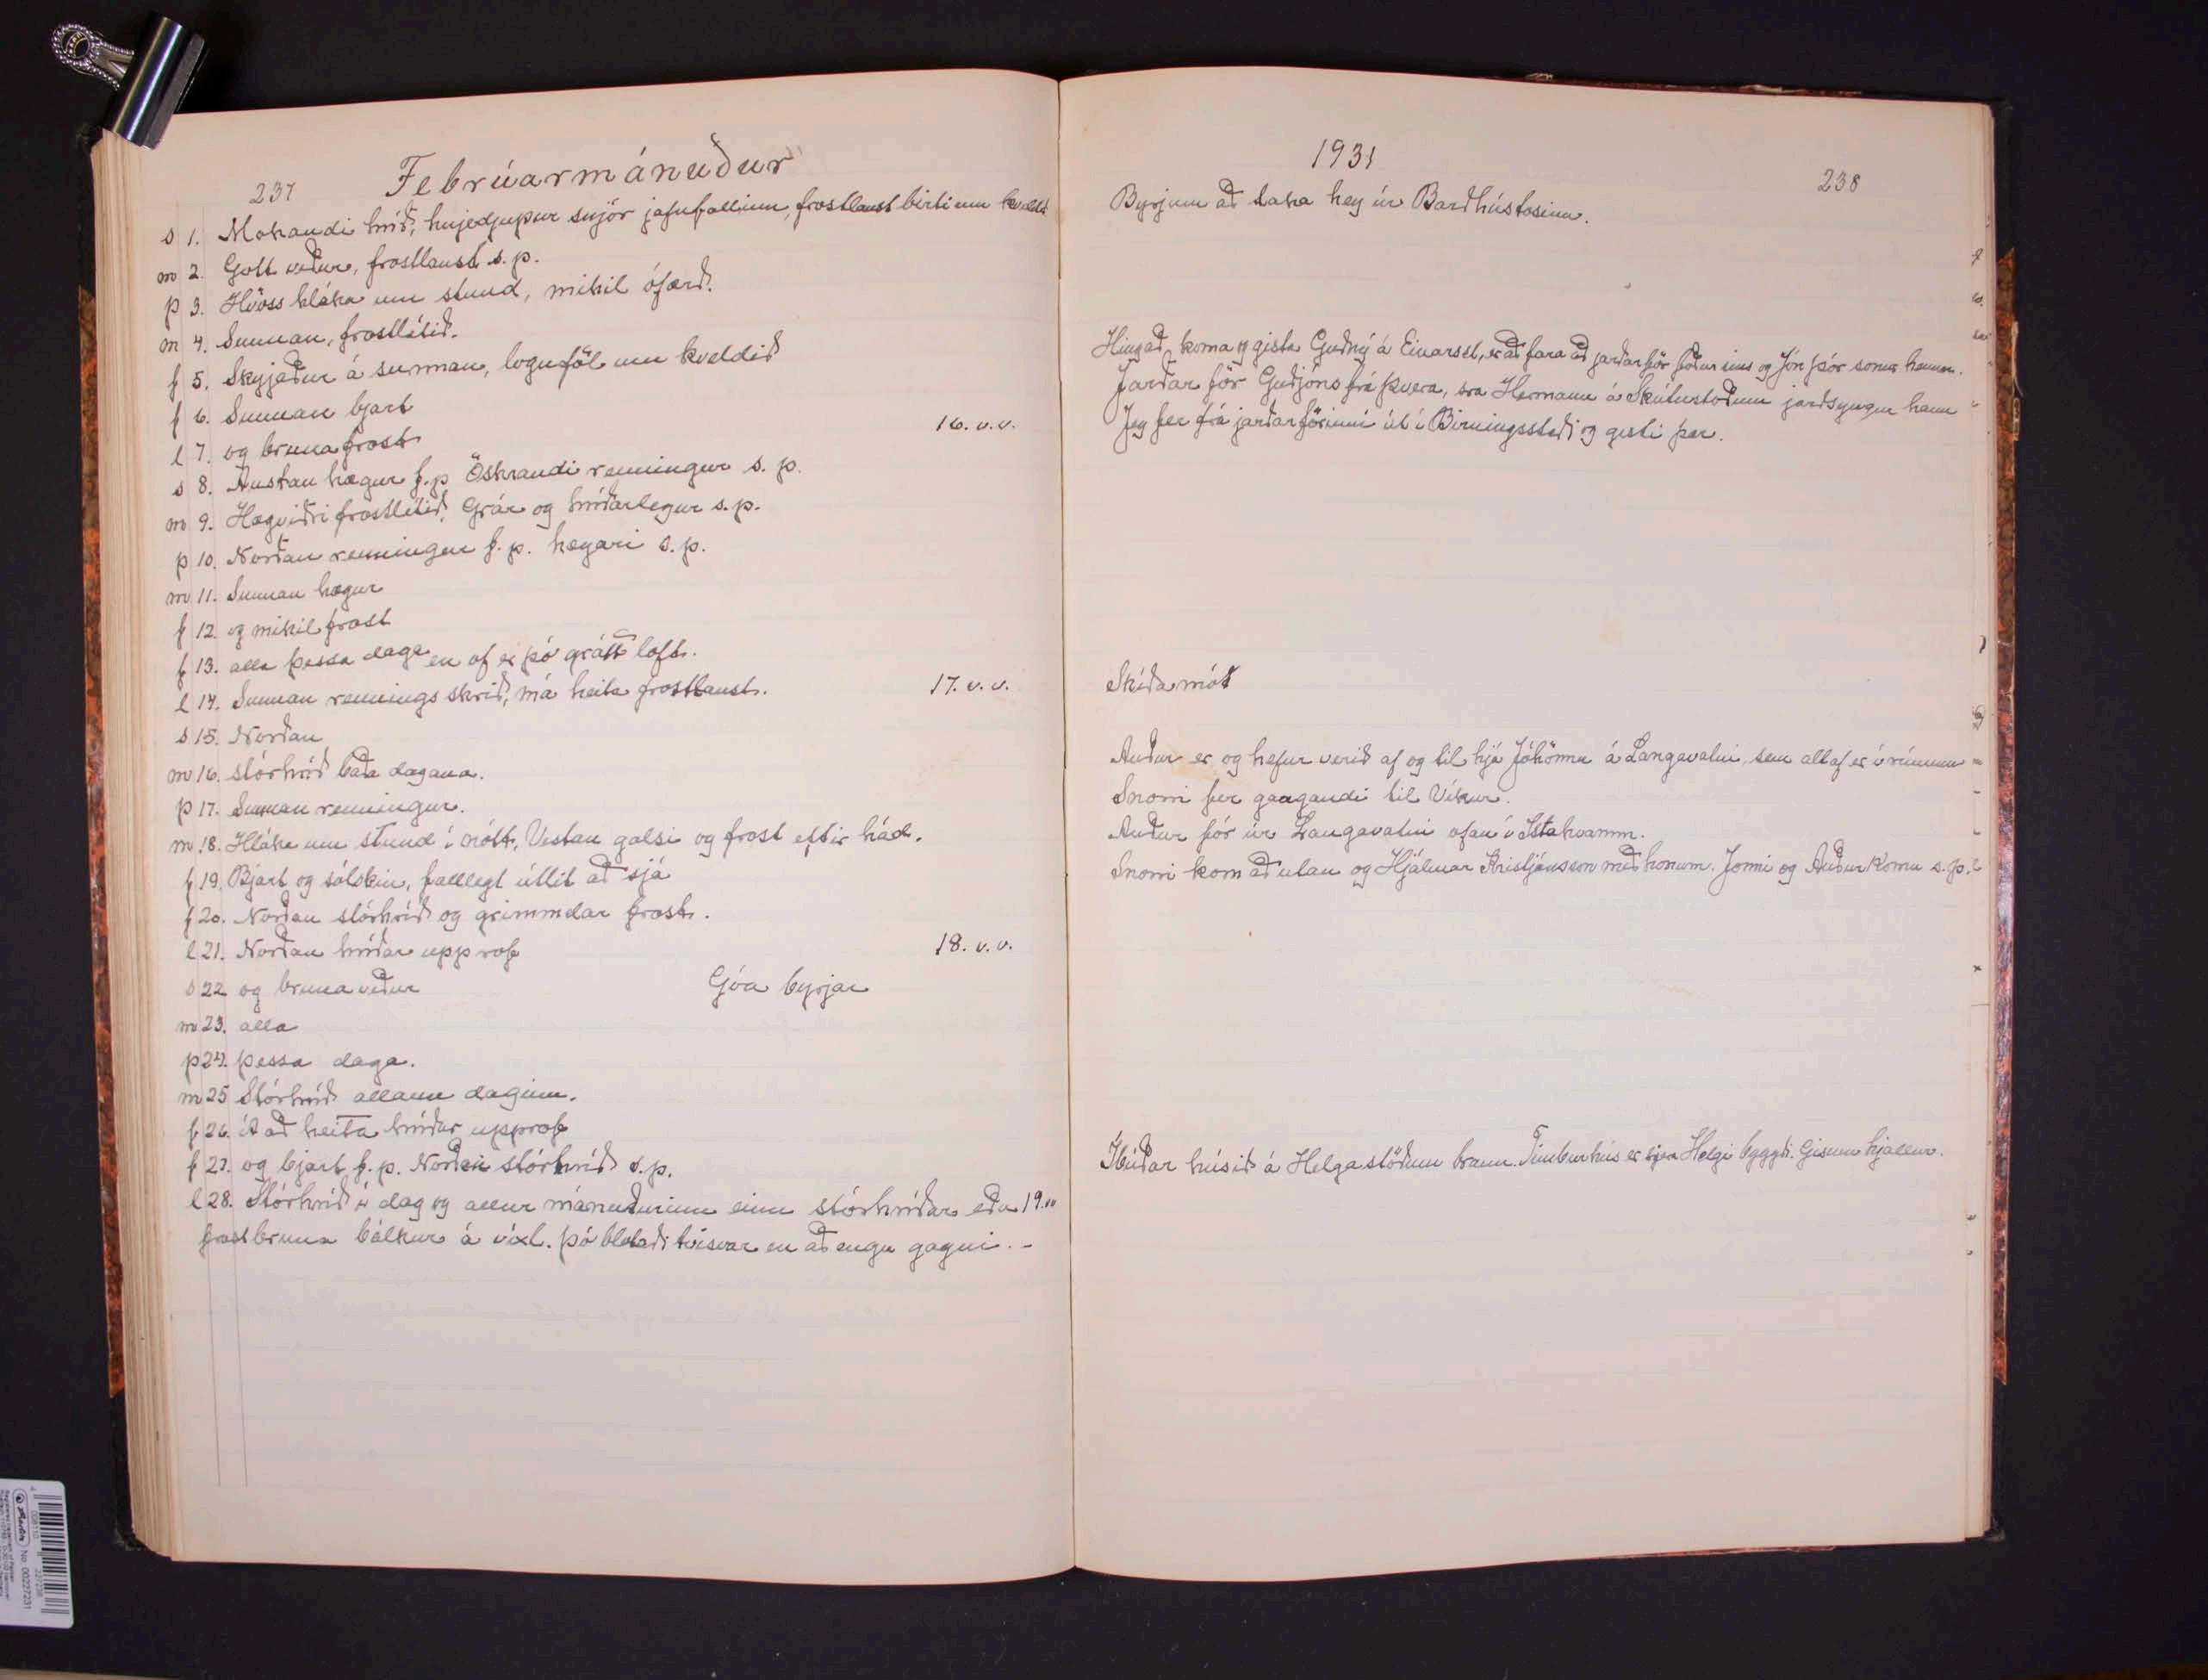 237 Febrúarmánuður
s 1. Mokandi hríð, hnjedjúpur snjór jafnfallinn, frostlaust birti um kveldið
m 2. Gott veður, frostlaust s.p.
þ 3. Hvöss hláka um stund, mikil ófærð.
m 4. Sunnan, frostlítið.
f 5. Skýjaður á sunnan, lognföl um kveldið
f 6. Sunnan bjart
l 7. og bruna frost 16. v.v.
s 8. Austan hægur f.p. Öskrandi renningur s.p.
m 9. Hægviðri frostlítið, Grár og hríðarlegur s.p.
þ 10. Norðan renningur f.p. hægari s.p.
m 11. Sunnan hægur
f 12. og mikil frost
f 13. alla þessa daga en of er þó grátt loft.
l 14. Sunnan rennings skrið, má heita frostlaust. 17. v.v.
s 15. Norðan
m 16. stórhríð báða dagana.
þ 17. Sunnan renningur.
m 18. Hláka um stund í nótt, Vestan galsi og frost eftir hád.
f 19. Bjart og sólskin, fallegt útlit að sjá
f 20. Norðan stórhríð og grimmdar frost.
l 21. Norðan hríðar upprof 18. v.v.
s 22 og bruna veður Góa byrjar
m 23. alla
þ 24. þessa daga.
m 25 Stórhríð allann daginn.
f 26. á að heita hríðar upprof
f 27. og bjart f.p. Norðan stórhríð s.p.
l 28. Stórhríð í dag og allur mánuðurinn einn stórhríðar eða 19. "
frostbruna bálkur á víxl. þó blotaði tvisvar en að engu gagni. -
1931 238
Byrjum að taka hey úr Barðhústosinu.
Hingað koma og gista Guðný á Einarsst, er að fara að jarðarför föður síns og Jón Þór sonur hennar.
Jarðar för Guðjóns frá Þverá, sra Hermann á Skútustöðum jarðsyngur hann
Jeg fer frá jarðarförinni út í Birningsstaði og gisti þar.
Skíðamót
Auður er og hefur verið af og til hjá Jóhönnu á Langavatni, sem alltaf er í rúminu
Snorri fer gangandi til Víkur.
Auður fór úr Langavatni ofan í Ystahvamm.
Snorri kom að utan og Hjálmar Kristjánsson með honum. Jonni og Auður komu s.p.
Íbúðar húsið á Helgastöðum brann. Timburhús er sjera Helgi byggði. Gisinn hjallur.